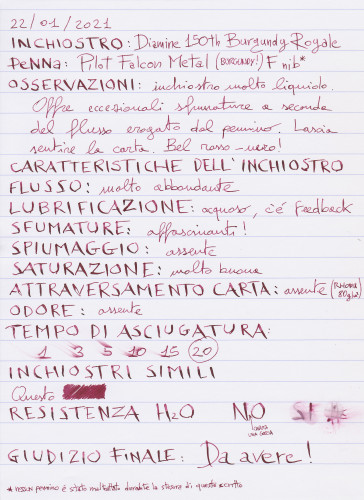 22/01/2021
INCHIOSTRO: Diamine 150th Burgundy Royale
PENNA: Pilot Falcon Metal (BURGUNDY!) F nib*
OSSERVAZIONI: inchiostro molto liquido.
Offre eccezionali sfumature a seconda
del flusso erogato dal pennino. Lascia
sentire la carta. Bel rosso-nero!
CARATTERISTICHE DELL'INCHIOSTRO
FLUSSO: molto abbondante
LUBRIFICAZIONE: acquoso, c'è feedback
SFUMATURE: affascinanti!
SPIUMAGGIO: assente
SATURAZIONE: molto buona
ATTRAVERSAMENTO CARTA: assente (RHODIA 80g/m2)
ODORE: assente
TEMPO DI ASCIUGATURA:
1 3 5 10 15 20
INCHIOSTRI SIMILI
Questo
RESISTENZA H2O NO SI #
GIUDIZIO FINALE: Da avere!
* nessun pennino è stato maltrattato durante la stesura di questo scritto